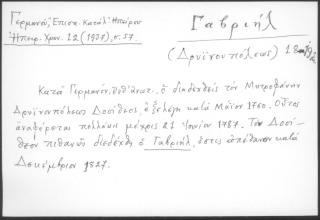 Γερμανοῦ, Ἐπισκ. Κατάλ. Ἠπείρου
Ἠπειρ. Χρον. 12 (1937), σ. 57.
Γαβριήλ
(Δρυϊνουπόλεως) 18
Κατὰ Γερμανόν, ὁ διαδεχθεὶς τὸν Μητροφάνην
Δρυϊνουπόλεως Δοσίθεος, ἐξελέγη κατὰ Μάϊον 1760. Οὗτος
ἀναφέρεται πολλάκις μέχρις 21 Ἰουνίου 1787. Τὸν Δοσί-
θεον πιθανῶς διεδέχθη ὁ Γαβριήλ, ὅστις ἀπέθανεν κατὰ
Δεκέμβριον 1827.